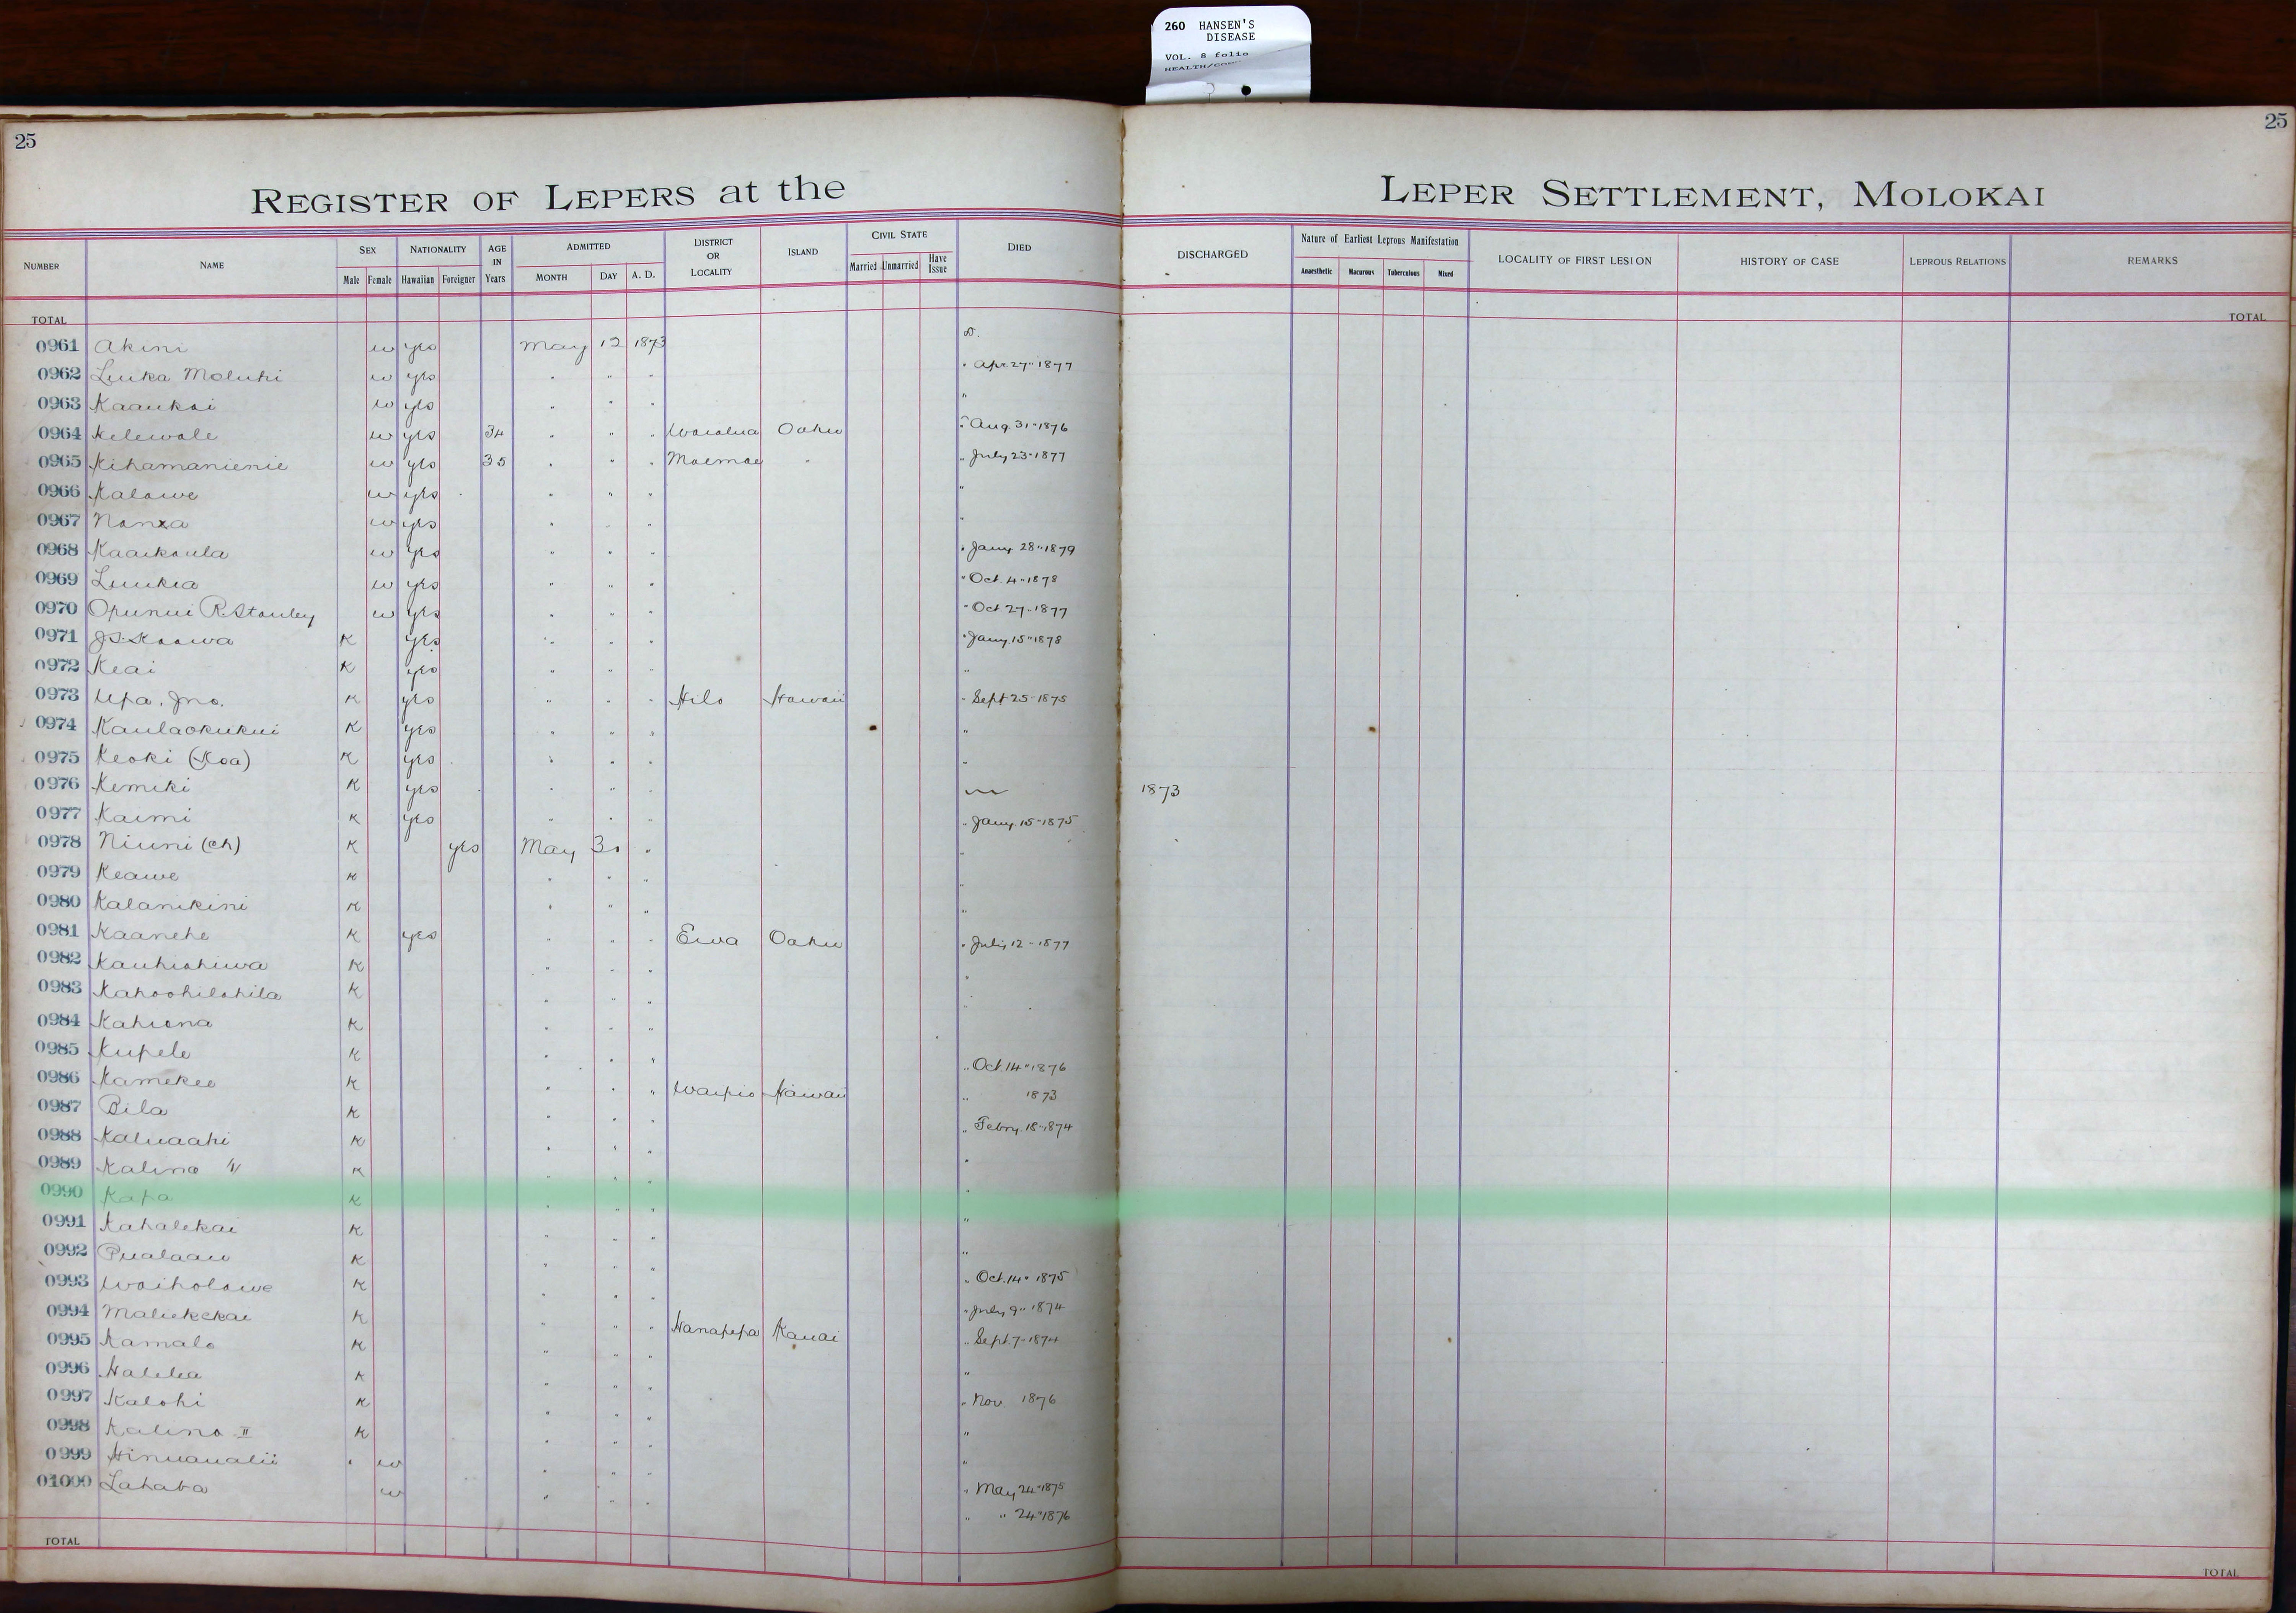 260 HANSEN'S
DISEASE
VOL. 8 folio
25
25
REGISTER OF LEPERS at the
LEPER SETTLEMENT, MOLOKAI
NUMBER NAME SEX Male Female NATIONALITY Hawaiian Foreigner AGE IN Years ADMITTED MONTH DAY A. D. DISTRICT OR LOCALITY ISLAND CIVIL STATE Married Unmarried Have Issue DIED DISCHARGED Nature of Earliest Leprous Manifestation Anaesthetic Macurous Tuberculous Mixed LOCALITY OF FIRST LESION HISTORY OF CASE LEPROUS RELATIONS REMARKS
TOTAL TOTAL
0961 Akini w yes May 12 1873 D.
0962 Luika Moluhi w yes " " " " Apr. 27" 1877
0963 Kaaukai w yes " " " "
0964 Kelewale w yes 34 " " " Waialua Oahu " Aug. 31" 1876
0965 Kihamanienie w yes 35 " " " Moemoe " " July 23" 1877
0966 Kalawe w yes " " " "
0967 w yes " " " "
0968 Kaaikaula w yes " " " " Jany. 28" 1879
0969 Luukia w yes " " " " Oct. 4" 1878
0970 Opunui R. Stanley w yes " " " " Oct 27" 1877
0971 J.S. Kaawa K yes " " " " Jany. 15" 1878
0972 Keai K yes " " " "
0973 Upa. Jno. K yes " " " Hilo Hawaii " Sept 25" 1875
0974 Kaulaokukui K yes " " " "
0975 Keoki (Koa) K yes " " " "
0976 Kemiki K yes " " " 1873
0977 Kaimi K yes " " " " Jany. 15" 1875
0978 Niuni (ch) K yes May 30 " "
0979 Keawe K " " " "
0980 Kalanikini K " " " "
0981 Kaanehe K yes " " " Ewa Oahu " July 12" 1877
0982 Kauhiahiwa K " " " "
0983 Kahoohilahila K " " " "
0984 Kahiona K " " "
0985 Kupele K " " " " Oct. 14" 1876
0986 Kamekeo K " " " Waipio Hawaii " 1873
0987 Bila K " " " " Febry. 18" 1874
0988 Kaluaahi K " " " "
0989 Kalino K " " " "
0990 Kapa K " " " "
0991 Kahalekai K " " " "
0992 Pualaau K " " " " Oct. 14" 1875
0993 Waiholowe K " " " " July 9" 1874
0994 Maliekekai K " " " Hanapepa Kauai " Sept. 7" 1874
0995 Kamalo K " " " "
0996 Halelea K " " " " Nov. 1876
0997 Kalohi K " " " "
0998 Kalino II K " " " "
0999 Hinuaualii w " " " " May 24" 1875
01000 Lahaba w " " " " " 24" 1876
TOTAL TOTAL